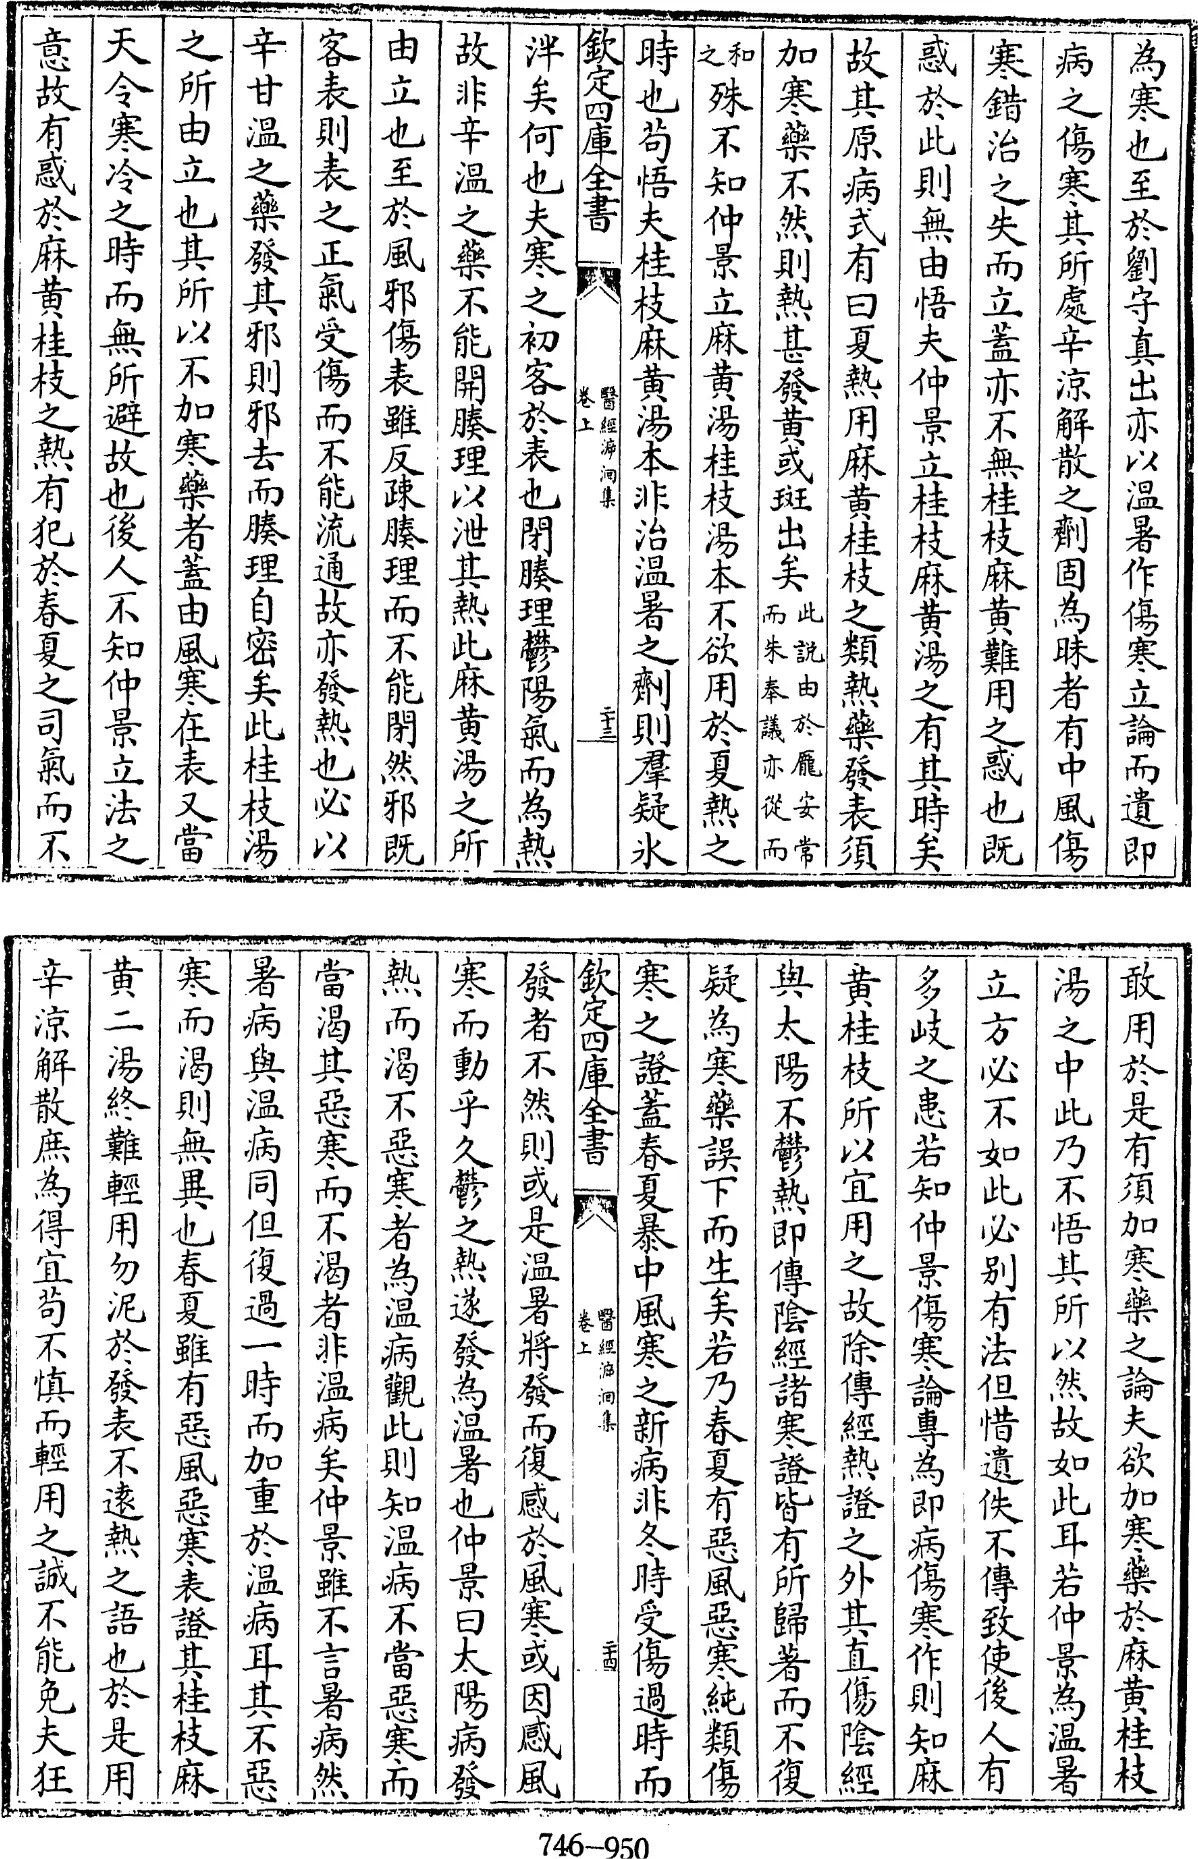 為寒也至於劉守真出亦以温暑作傷寒立論而遺即
病之傷寒其所處辛涼解散之劑固為昧者有中風傷
寒錯治之失而立蓋亦不無桂枝麻黄難用之惑也既
惑於此則無由悟夫仲景立桂枝麻黄湯之有其時矣
故其原病式有曰夏熱用麻黄桂枝之類熱藥發表須
加寒藥不然則熱甚發黄或斑出矣此説由於龐安常而朱奉議亦從而
和之殊不知仲景立麻黄湯桂枝湯本不欲用於夏熱之
時也苟悟夫桂枝麻黄湯本非治温暑之劑則羣疑氷
欽定四庫全書
醫經溯洄集
卷上
二十三
泮矣何也夫寒之初客於表也閉腠理鬱陽氣而為熱
故非辛温之藥不能開腠理以泄其熱此麻黄湯之所
由立也至於風邪傷表雖反疎腠理而不能閉然邪既
客表則表之正氣受傷而不能流通故亦發熱也必以
辛甘温之藥發其邪則邪去而腠理自密矣此桂枝湯
之所由立也其所以不加寒藥者蓋由風寒在表又當
天令寒冷之時而無所避故也後人不知仲景立法之
意故有惑於麻黄桂枝之熱有犯於春夏之司氣而不
敢用於是有須加寒藥之論夫欲加寒藥於麻黄桂枝
湯之中此乃不悟其所以然故如此耳若仲景為温暑
立方必不如此必别有法但惜遺佚不傳致使後人有
多岐之患若知仲景傷寒論專為即病傷寒作則知麻
黄桂枝所以宜用之故除傳經熱證之外其直傷陰經
與太陽不鬱熱即傳陰經諸寒證皆有所歸著而不復
疑為寒藥誤下而生矣若乃春夏有惡風惡寒純類傷
寒之證蓋春夏暴中風寒之新病非冬時受傷過時而
欽定四庫全書
醫經溯洄集
卷上
二十四
發者不然則或是温暑將發而復感於風寒或因感風
寒而動乎久鬱之熱遂發為温暑也仲景曰太陽病發
熱而渴不惡寒者為温病觀此則知温病不當惡寒而
當渴其惡寒而不渴者非温病矣仲景雖不言暑病然
暑病與温病同但復過一時而加重於温病耳其不惡
寒而渴則無異也春夏雖有惡風惡寒表證其桂枝麻
黄二湯終難輕用勿泥於發表不逺熱之語也於是用
辛涼解散庶為得宜苟不慎而輕用之誠不能免夫狂
746-950